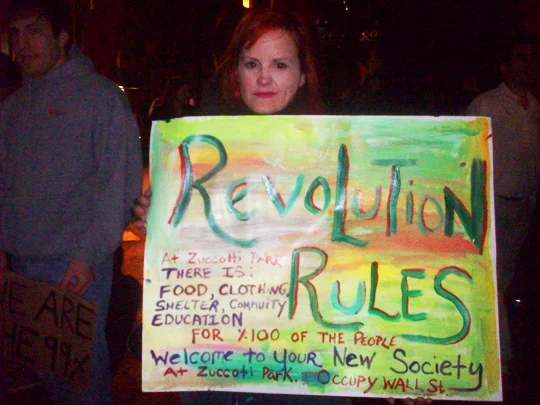 REVOLUTION
RULES
At Zuccotti Park
THERE IS:
FOOD, CLOTHING,
SHELTER, COMMUITY
EDUCATION
FOR %100 OF THE PEOPLE
Welcome to Your New Society
At Zuccoti Park. Occupy Wall St
WE ARE
THE 99%